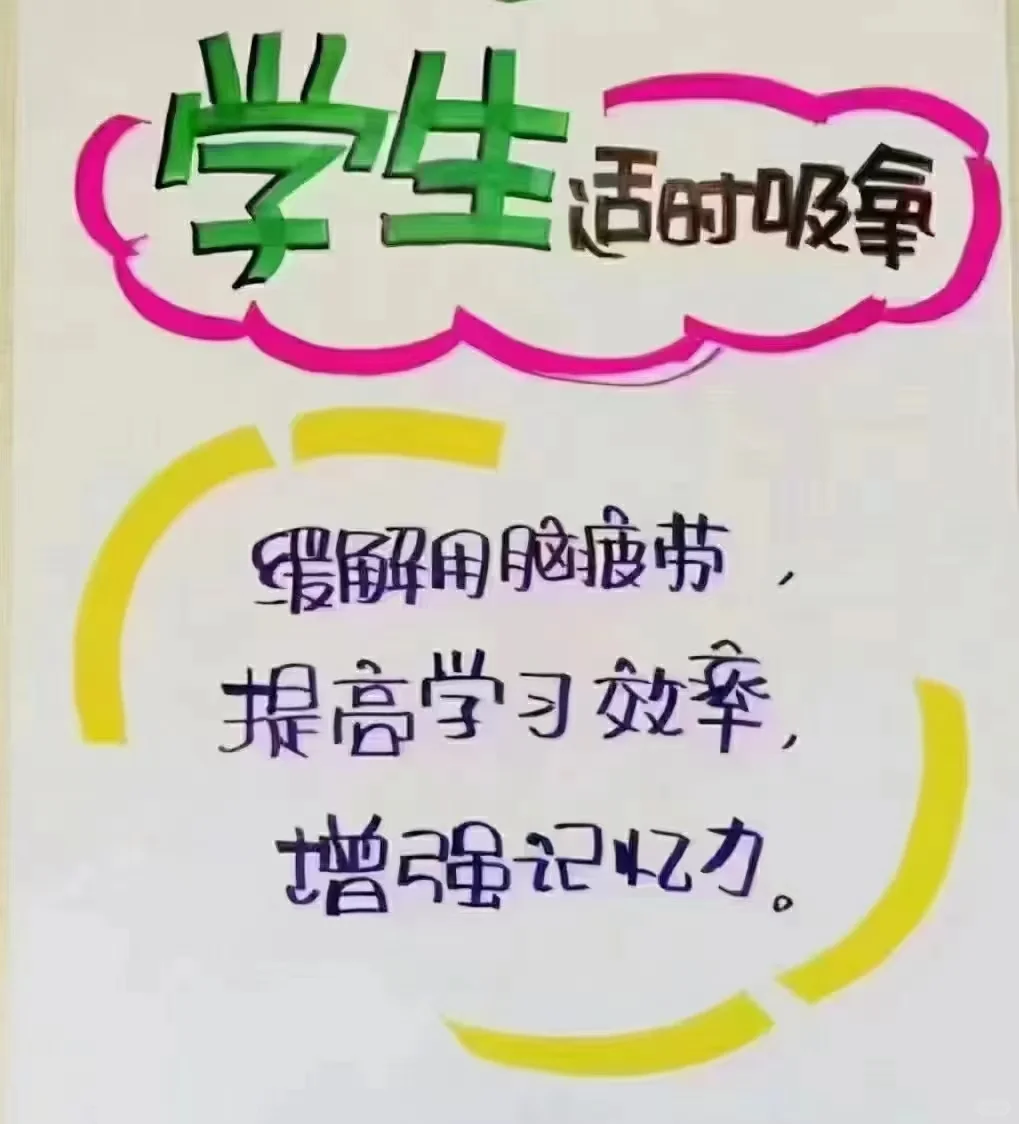 学生适时吸氧
缓解用脑疲劳，
提高学习效率，
增强记忆力。